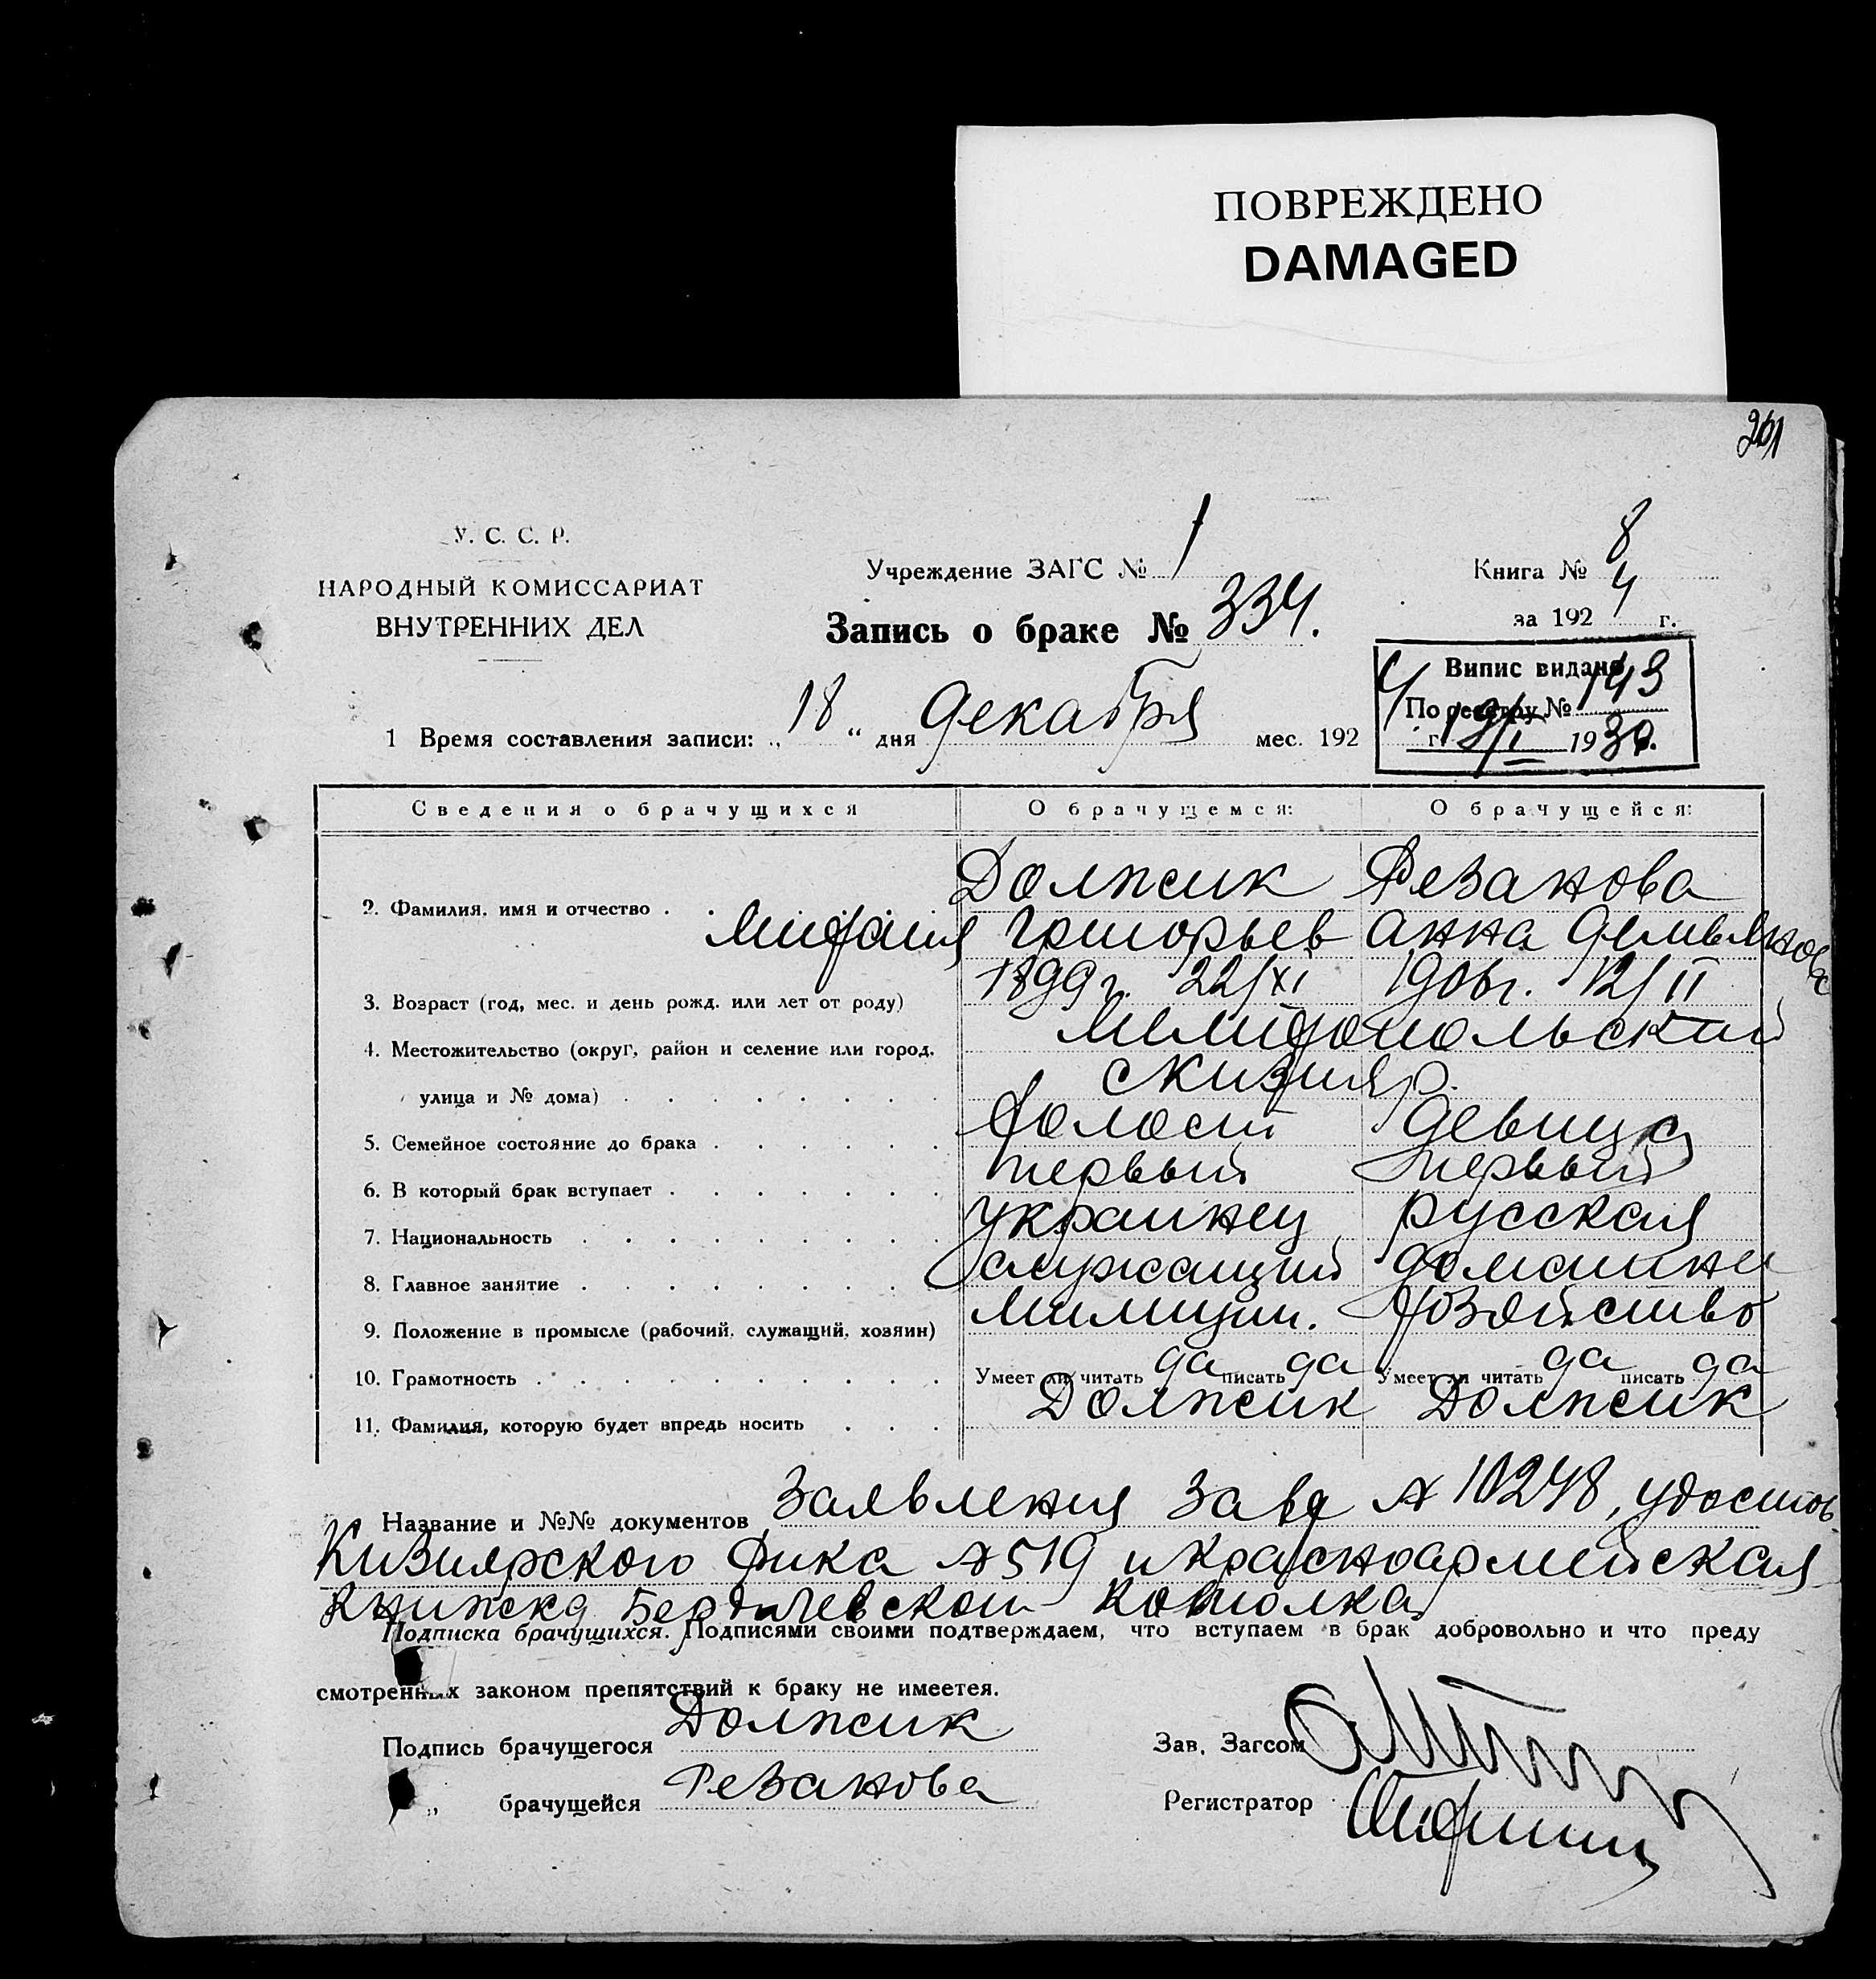 ПОВРЕЖДЕНО
DAMAGED
261
У. С. С. Р.
НАРОДНЫЙ КОМИССАРИАТ
ВНУТРЕННИХ ДЕЛ
Учреждение ЗАГС № 1
Запись о браке № 334.
Книга № 8
за 1924 г.
Випис видано
По реестру № 143
19/I 1930.
1 Время составления записи: „18“ дня декабря мес. 1924 г.
Сведения о брачущихся О брачущемся: О брачущейся:
Должик Резанова
2. Фамилия, имя и отчество . .
Григорьев Анна Демьяновна
3. Возраст (год, мес. и день рожд. или лет от роду) 1899 г. 22/XI 1906 г. 12/II
4. Местожительство (округ, район и селение или город, Мелитопольский
улица и № дома) . . . . . . .
5. Семейное состояние до брака . . . . . . Холост Девица
6. В который брак вступает . . . . . . . первый первый
7. Национальность . . . . . . . . . украинец русская
8. Главное занятие . . . . . . . . служащий домашнее
9. Положение в промысле (рабочий, служащий, хозяин) милиции. хозяйство
10. Грамотность . . . . . . . . . . Умеет ли читать да писать да Умеет ли читать да писать да
11. Фамилия, которую будет впредь носить . . . Должик Должик
Название и №№ документов Заявления № 10248, удостов
Кизиярского Рика № 519 и красноармейская
книжка Бердичевского
Подписка брачущихся. Подписями своими подтверждаем, что вступаем в брак добровольно и что преду
смотренных законом препятствий к браку не имеетея.
Подпись брачущегося Должик
„ брачущейся Резанова
Зав. Загсом
Регистратор